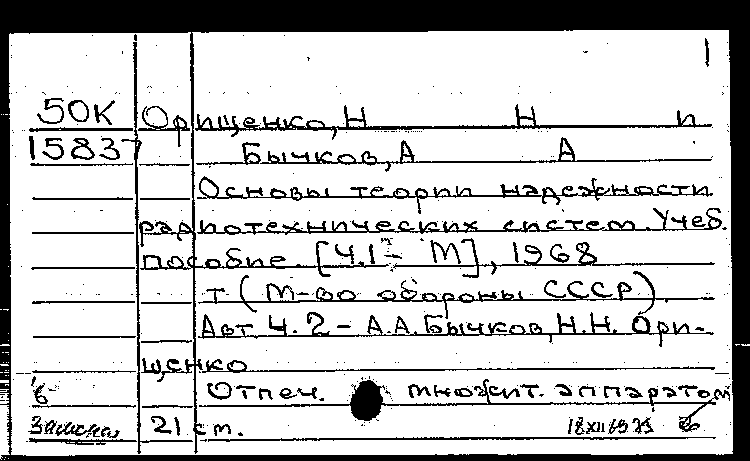 1
50К Орищенко, Н Н и
15837 Бычков, А А
Основы теории надежности
радиотехнических систем. Учеб.
пособие. [Ч.1- М], 1968
т (М-во обороны СССР).
Авт. Ч.2 - А.А. Бычков, Н.Н. Ори-
щенко
Отпеч. множит. аппаратом
21 см.